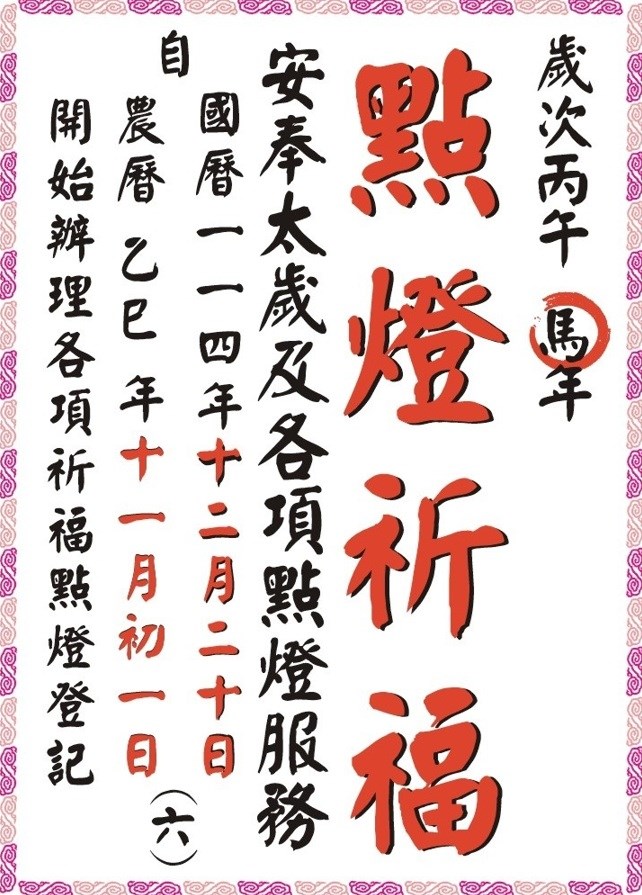 歲次丙午馬年
點燈祈福
安奉太歲及各項點燈服務
自
國曆一一四年十二月二十日
農曆乙巳年十一月初一日
(六)
開始辦理各項祈福點燈登記